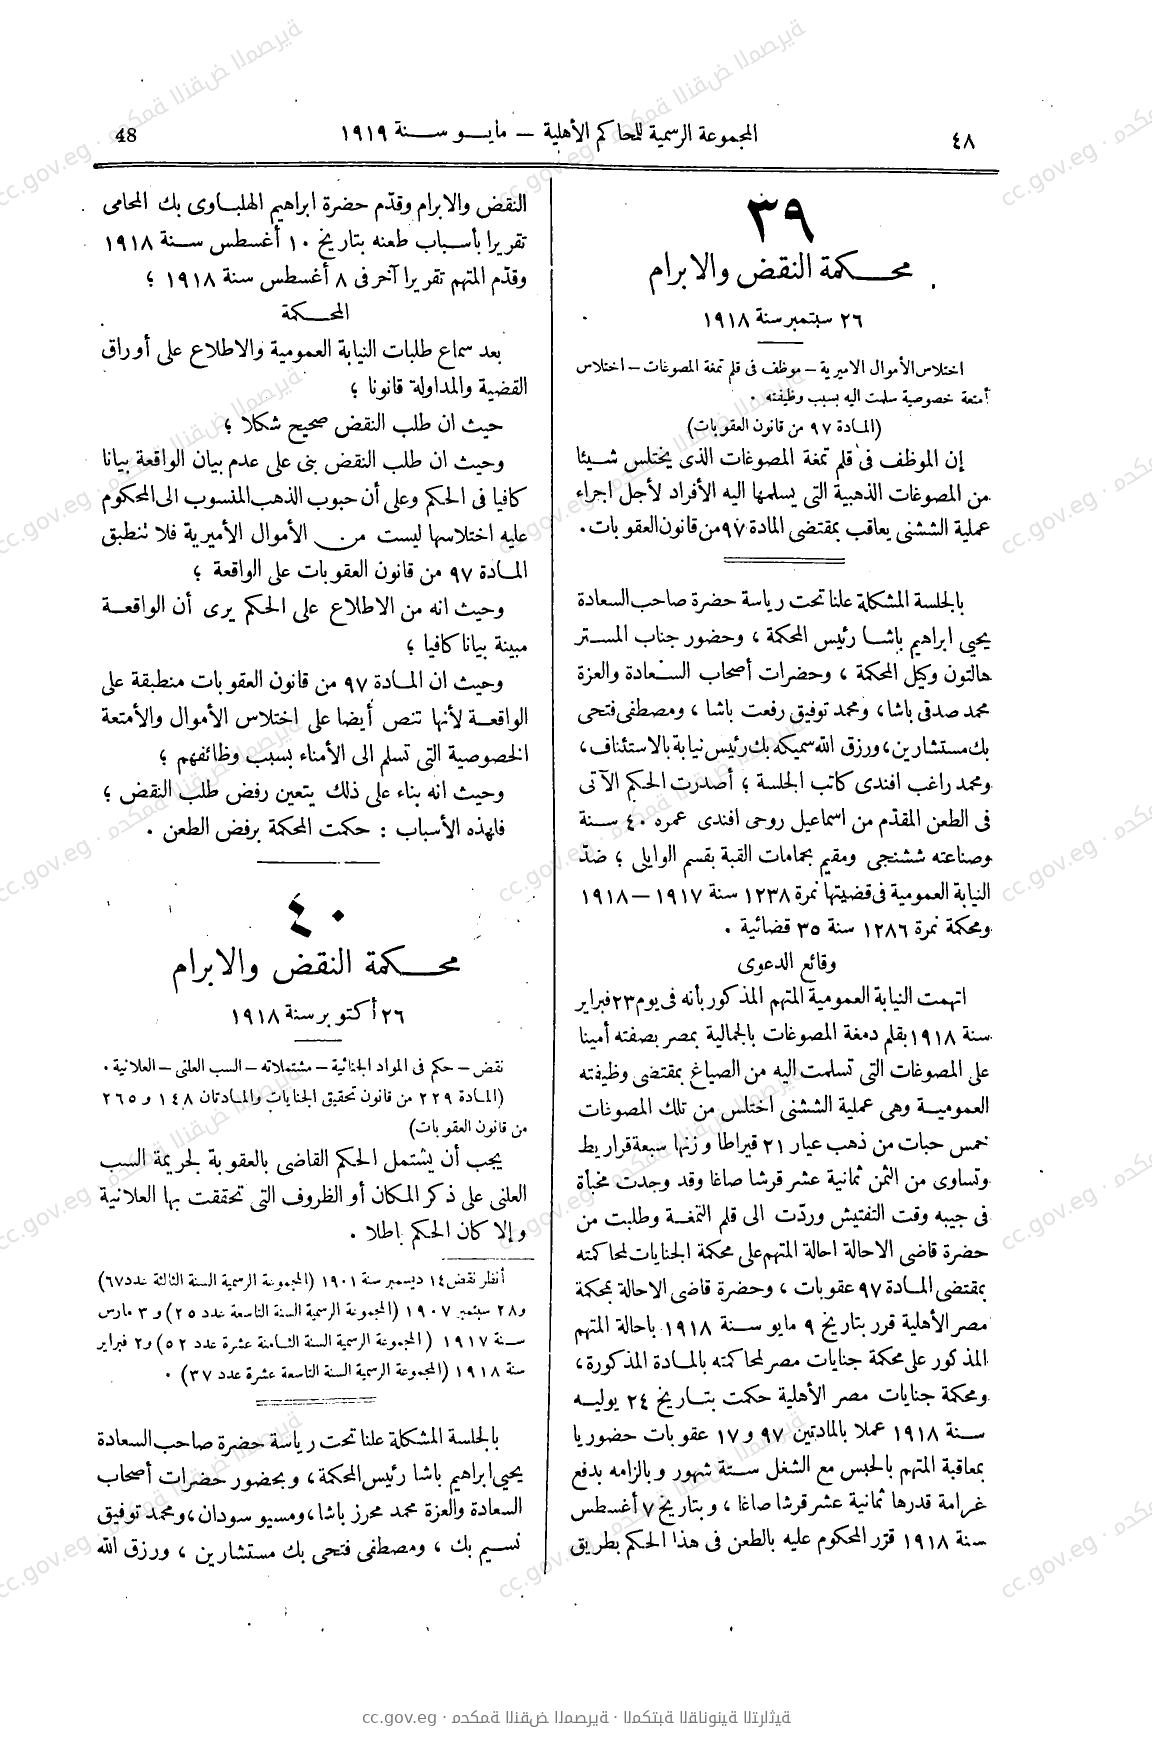 ٤٨
المجموعة الرسمية للمحاكم الأهلية – مايو سنة ١٩١٩
48
٣٩
محكمة النقض والابرام
٢٦ سبتمبر سنة ١٩١٨
اختلاس الأموال الاميرية – موظف فى قلم تمغة المصوغات – اختلاس
أمتعة خصوصية سلمت اليه بسبب وظيفته .
(المادة ٩٧ من قانون العقوبات)
إن الموظف فى قلم تمغة المصوغات الذى يختلس شيئا
من المصوغات الذهبية التى يسلمها اليه الأفراد لأجل اجراء
عملية الششنى يعاقب بمقتضى المادة ٩٧ من قانون العقوبات.
بالجلسة المشكلة علنا تحت رياسة حضرة صاحب السعادة
يحيى ابراهيم باشا رئيس المحكمة ، وحضور جناب المستر
هالتون وكيل المحكمة ، وحضرات أصحاب السعادة والعزة
محمد صدقى باشا، ومحمد توفيق رفعت باشا ، ومصطفى فتحى
بك مستشارين، ورزق الله سميكه بك رئيس نيابة بالاستئناف،
ومحمد راغب افندى كاتب الجلسة ؛ أصدرت الحكم الآتى
فى الطعن المقدّم من اسماعيل روحى افندى عمره ٤٠ سنة
وصناعته ششنجى ومقيم بحمامات القبة بقسم الوايلى ؛ ضدّ
النيابة العمومية فى قضيتها نمرة ١٢٣٨ سنة ١٩١٧ – ١٩١٨
ومحكمة نمرة ١٢٨٦ سنة ٣٥ قضائية .
وقائع الدعوى
اتهمت النيابة العمومية المتهم المذكور بأنه فى يوم ٢٣ فبراير
سنة ١٩١٨ بقلم دمغة المصوغات بالجمالية بمصر بصفته أمينا
على المصوغات التى تسلمت اليه من الصياغ بمقتضى وظيفته
العمومية وهى عملية الششنى اختلس من تلك المصوغات
خمس حبات من ذهب عيار ٢١ قيراطا وزنها سبعة قراريط
وتساوى من الثمن ثمانية عشر قرشا صاغا وقد وجدت مخبأة
فى جيبه وقت التفتيش وردّت الى قلم التمغة وطلبت من
حضرة قاضى الاحالة احالة المتهم على محكمة الجنايات لمحاكمته
بمقتضى المادة ٩٧ عقوبات ، وحضرة قاضى الاحالة بمحكمة
مصر الأهلية قرر بتاريخ ٩ مايو سنة ١٩١٨ باحالة المتهم
المذكور على محكمة جنايات مصر لمحاكمته بالمادة المذكورة،
ومحكمة جنايات مصر الأهلية حكمت بتاريخ ٢٤ يوليه
سنة ١٩١٨ عملا بالمادتين ٩٧ و ١٧ عقوبات حضوريا
بمعاقبة المتهم بالحبس مع الشغل ستة شهور وبالزامه بدفع
غرامة قدرها ثمانية عشر قرشا صاغا ، وبتاريخ ٧ أغسطس
سنة ١٩١٨ قرّر المحكوم عليه بالطعن فى هذا الحكم بطريق
النقض والابرام وقدّم حضرة ابراهيم الهلباوى بك المحامى
تقريرا بأسباب طعنه بتاريخ ١٠ أغسطس سنة ١٩١٨
وقدّم المتهم تقريرا آخر فى ٨ أغسطس سنة ١٩١٨ ؛
المحكمة
بعد سماع طلبات النيابة العمومية والاطلاع على أوراق
القضية والمداولة قانونا ؛
حيث ان طلب النقض صحيح شكلا ؛
وحيث ان طلب النقض بنى على عدم بيان الواقعة بيانا
كافيا فى الحكم وعلى أن حبوب الذهب المنسوب الى المحكوم
عليه اختلاسها ليست من الأموال الأميرية فلا تنطبق
المادة ٩٧ من قانون العقوبات على الواقعة ؛
وحيث انه من الاطلاع على الحكم يرى أن الواقعة
مبينة بيانا كافيا ؛
وحيث ان المادة ٩٧ من قانون العقوبات منطبقة على
الواقعة لأنها تنص أيضا على اختلاس الأموال والأمتعة
الخصوصية التى تسلم الى الأمناء بسبب وظائفهم ؛
وحيث انه بناء على ذلك يتعين رفض طلب النقض ؛
فلهذه الأسباب : حكمت المحكمة برفض الطعن .
٤٠
محكمة النقض والابرام
٢٦ أكتوبر سنة ١٩١٨
نقض – حكم فى المواد الجنائية – مشتملاته – السب العلنى – العلانية .
(المادة ٢٢٩ من قانون تحقيق الجنايات والمادتان ١٤٨ و ٢٦٥
من قانون العقوبات)
يجب أن يشتمل الحكم القاضى بالعقوبة لجريمة السب
العلنى على ذكر المكان أو الظروف التى تحققت بها العلانية
وإلا كان الحكم باطلا .
أنظر نقض ١٤ ديسمبر سنة ١٩٠١ (المجموعة الرسمية السنة الثالثة عدد ٦٧)
و ٢٨ سبتمبر ١٩٠٧ (المجموعة الرسمية السنة التاسعة عدد ٢٥) و ٣ مارس
سنة ١٩١٧ (المجموعة الرسمية السنة الثامنة عشرة عدد ٥٢) و ٢ فبراير
سنة ١٩١٨ (المجموعة الرسمية السنة التاسعة عشرة عدد ٣٧) .
بالجلسة المشكلة علنا تحت رياسة حضرة صاحب السعادة
يحيى ابراهيم باشا رئيس المحكمة ، وبحضور حضرات أصحاب
السعادة والعزة محمد محرز باشا، ومسيو سودان، ومحمد توفيق
نسيم بك ، ومصطفى فتحى بك مستشارين ، ورزق الله
cc.gov.eg · محكمة النقض المصرية · المكتبة القانونية التراثية